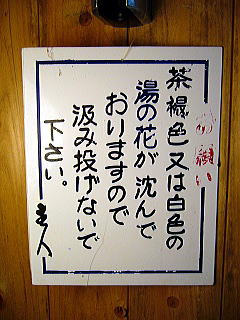 茶褐色又は白色の
湯の花が沈んで
おりますので
汲み投げないで
下さい。
主人